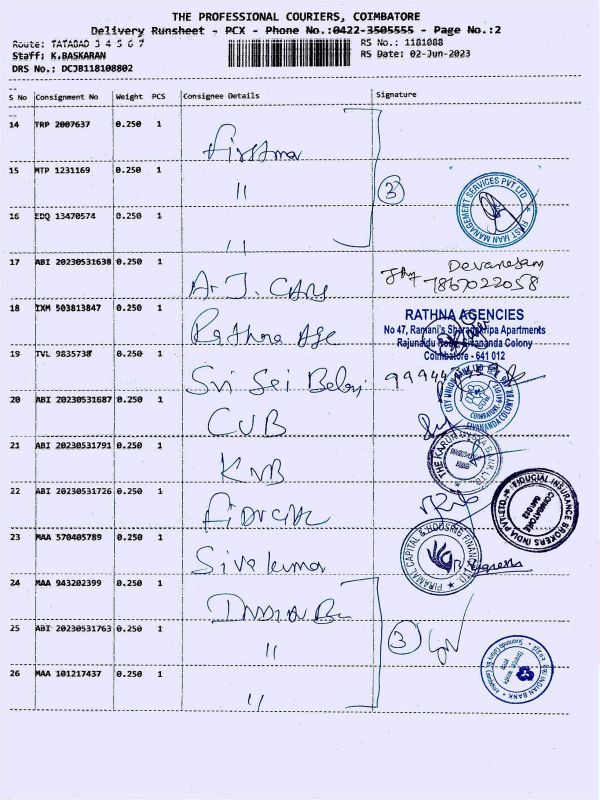 THE PROFESSIONAL COURIERS, COIMBATORE
Delivery Runsheet - PCX - Phone No.:0422-3505555 - Page No.:2
Route: TATABAD 3 4 5 6 7
RS No.: 1181088
Staff: K.BASKARAN
RS Date: 02-Jun-2023
DRS No.: DCJB118108802
S No Consignment No Weight PCS Consignee Details Signature
14 TRP 2007637 0.250 1
15 MTP 1231169 0.250 1 "
3
FAST MAN MANAGEMENT SERVICES PVT LTD
16 EDQ 13470574 0.250 1 "
17 ABI 20230531638 0.250 1
Devanesan
7867022058
18 IXM 503813847 0.250 1 Rathna Age
RATHNA AGENCIES
No 47, Ramani's Apartments
Rajunaidu Road, Sivananda Colony
Coimbatore - 641 012
19 TVL 9835738 0.250 1 Sri Sai
20 ABI 20230531687 0.250 1 CUB
SIVANANDA COLONY BR.
21 ABI 20230531791 0.250 1 KNB
22 ABI 20230531726 0.250 1
FIDUCIAL INSURANCE BROKERS INDIA PVT. LTD.
COIMBATORE
641 012
23 MAA 570405789 0.250 1 Sivakumar
PIRAMAL CAPITAL & HOUSING FINANCE LTD.
24 MAA 943202399 0.250 1
25 ABI 20230531763 0.250 1 "
3
INDIAN BANK
26 MAA 101217437 0.250 1 "